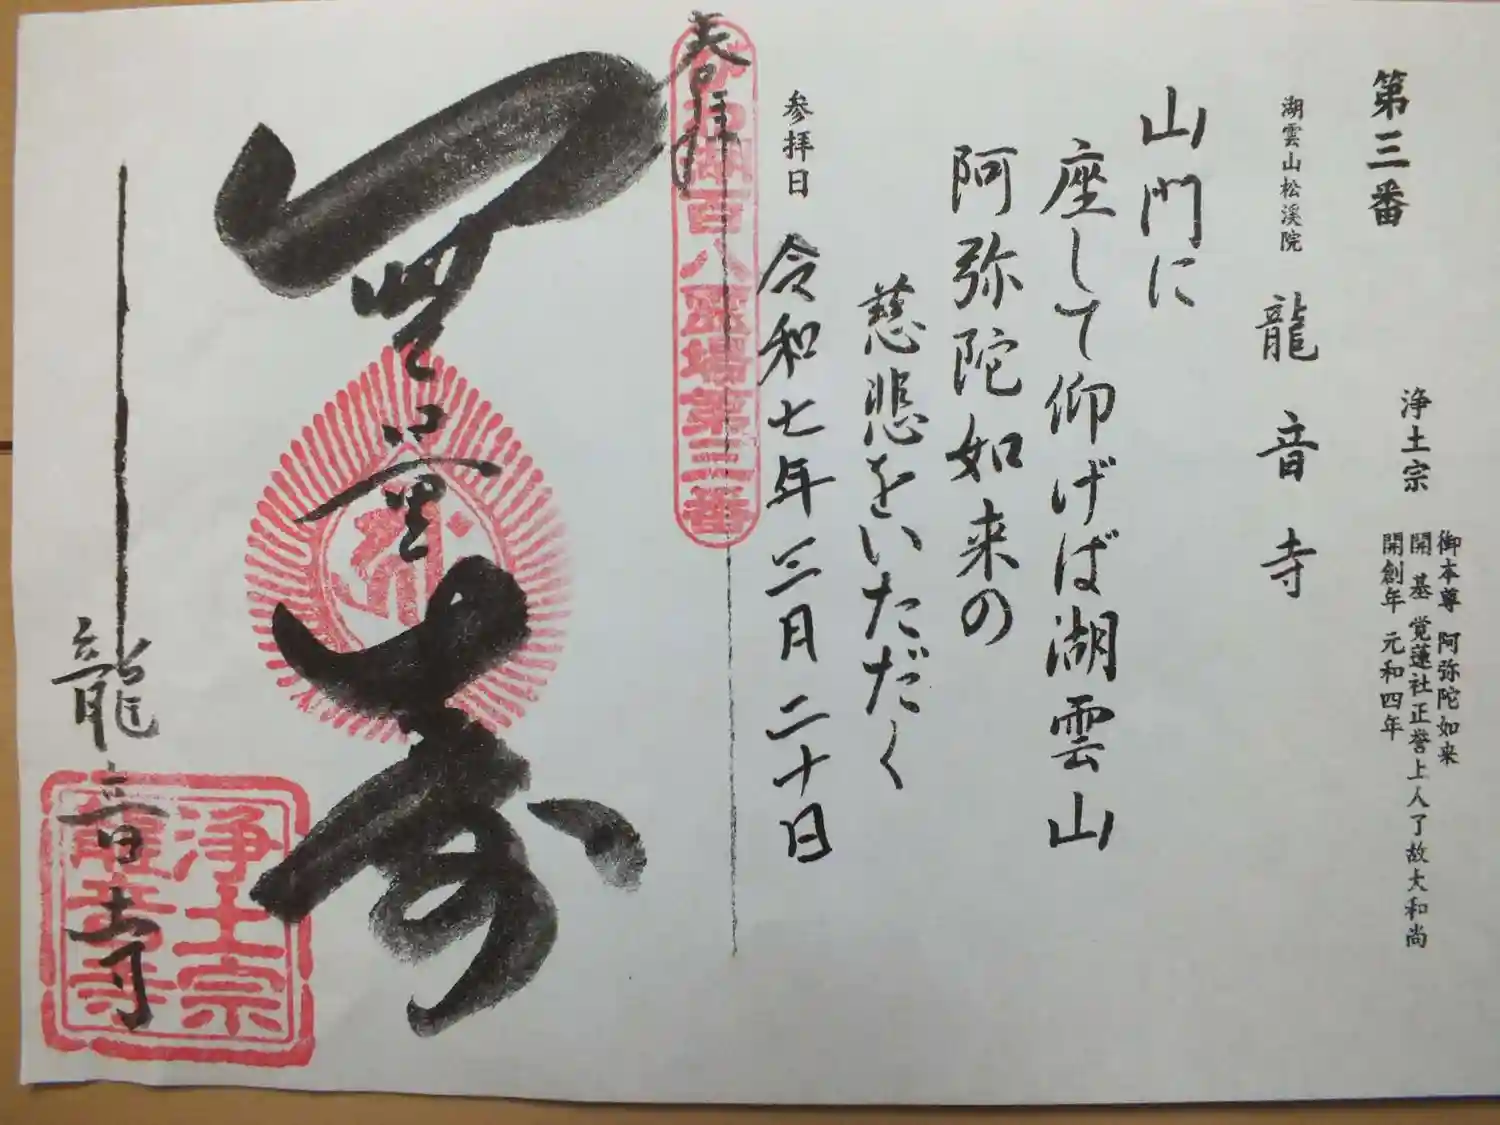 第三番
浄土宗
御本尊 阿弥陀如来
開 基 覚蓮社正誉上人了故大和尚
開創年 元和四年
湖雲山松溪院 龍音寺
山門に
座して仰げば湖雲山
阿弥陀如来の
慈悲をいただく
参拝日 令和七年三月二十日
奉拝
びわ湖百八霊場第三番
無量寿
龍音寺
浄土宗
龍音寺